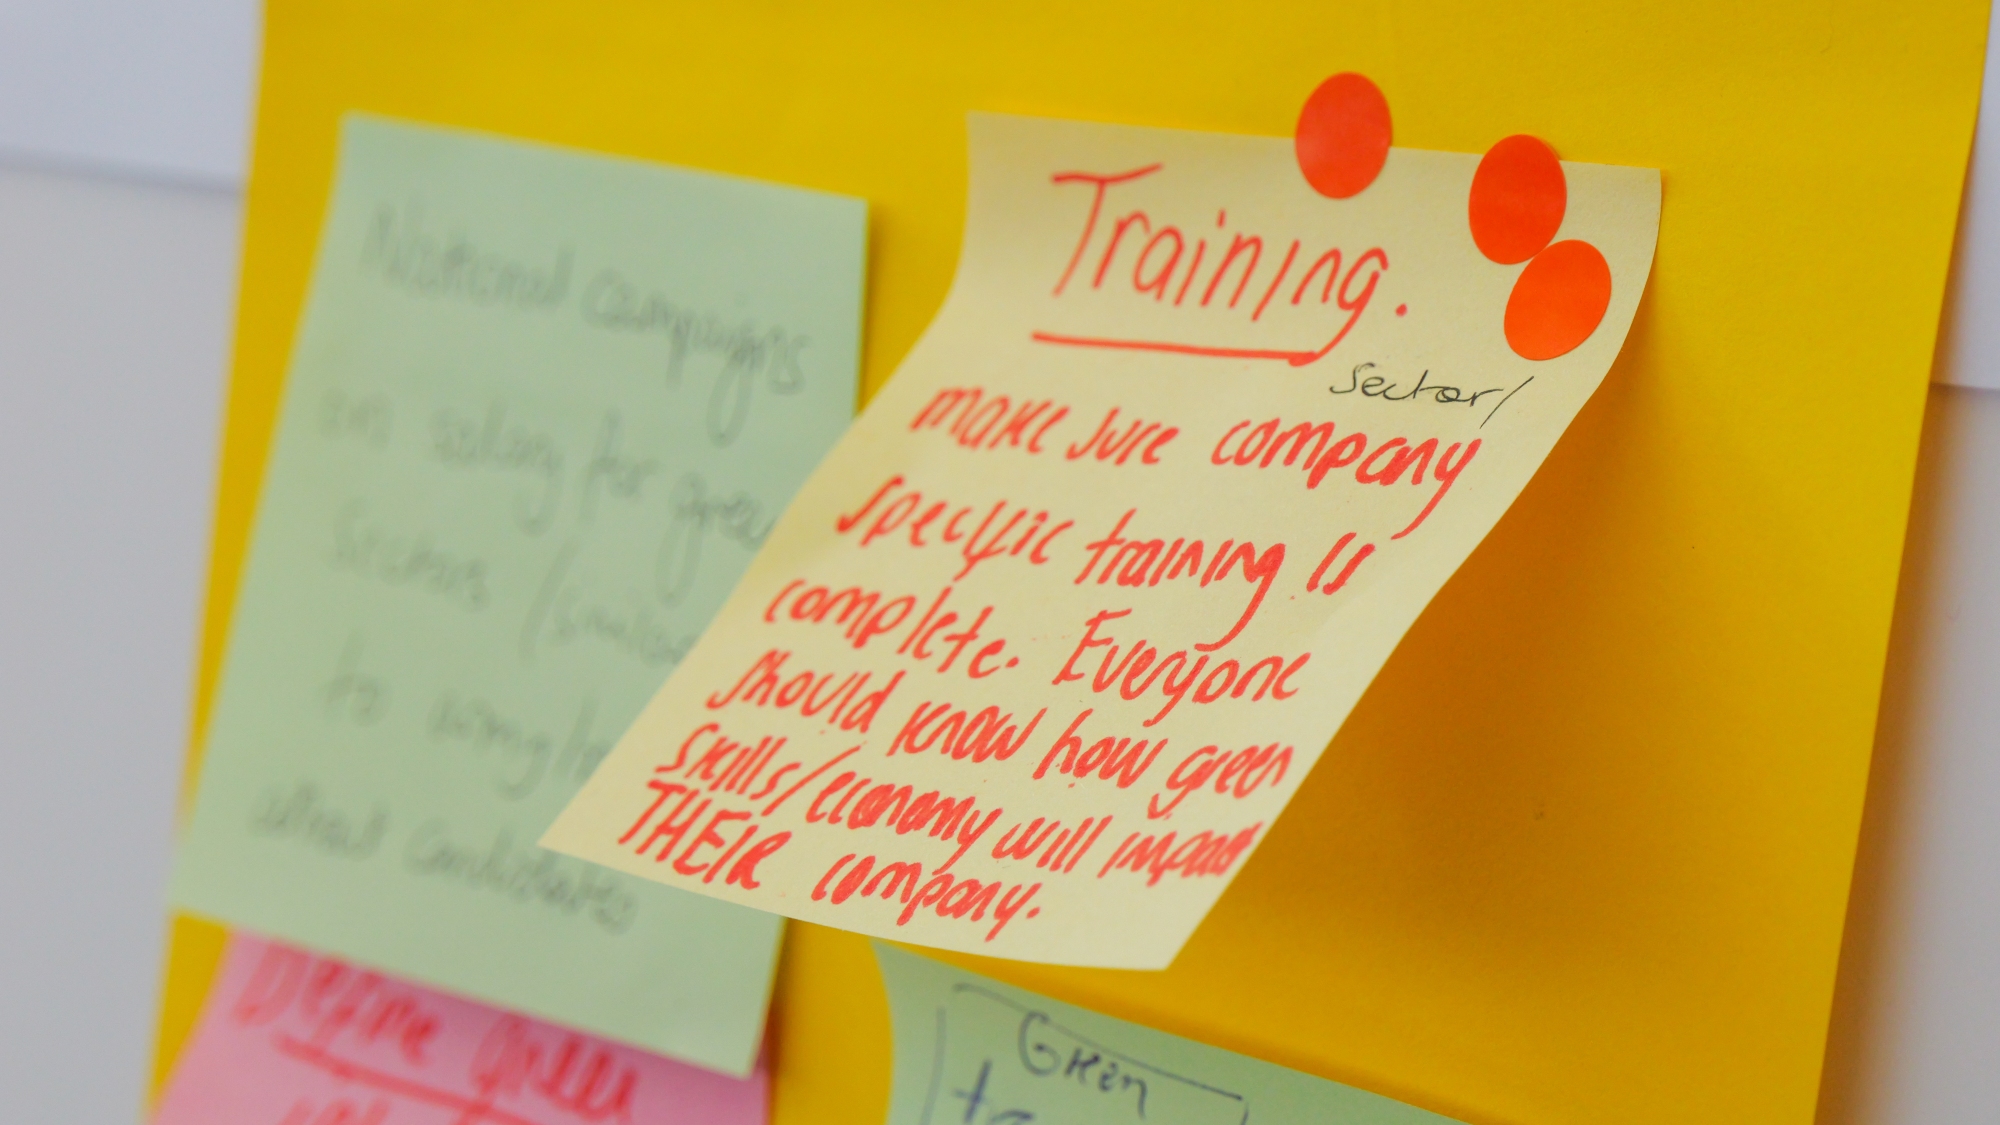 National campaigns
on salary for green
sectors / similar
to
attract candidates
Training.
sector/
make sure company
specific training is
complete. Everyone
should know how green
skills/economy will impact
THEIR company.
Define Green
Green